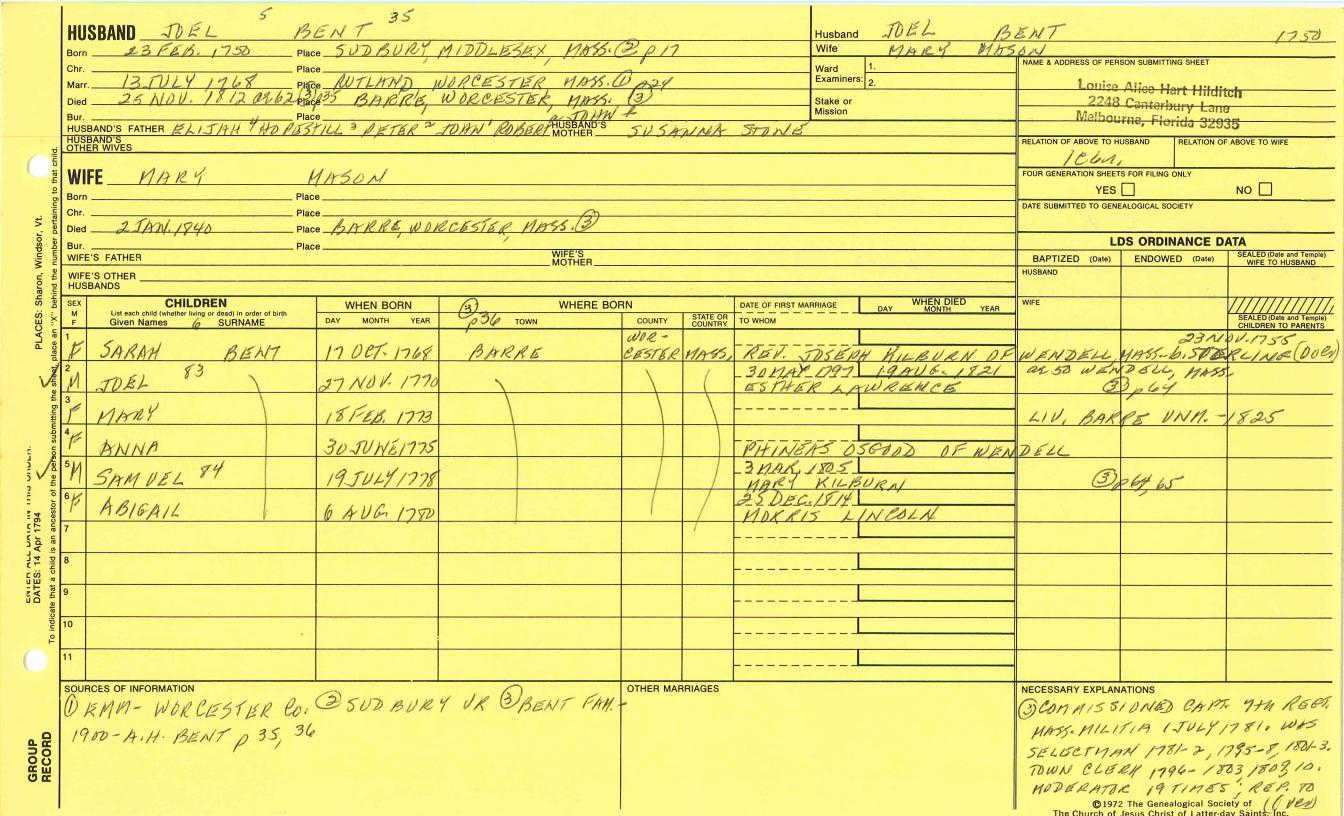 HUSBAND JOEL 5 BENT 35
Born 23 FEB. 1750 Place SUDBURY, MIDDLESEX, MASS. ② p17
Chr. Place
Marr. 13 JULY 1768 Place RUTLAND, WORCESTER MASS. ① p24
Died 25 NOV. 1812 ae62 ③ p35 Place BARRE, WORCESTER, MASS. ③
Bur. Place
HUSBAND'S FATHER ELIJAH 4 HOPESTILL 3 PETER 2 JOHN 1 ROBERT, JOHN HUSBAND'S MOTHER SUSANNA STONE
HUSBAND'S OTHER WIVES
WIFE MARY MASON
Born Place
Chr. Place
Died 2 JAN. 1840 Place BARRE, WORCESTER, MASS. ③
Bur. Place
WIFE'S FATHER WIFE'S MOTHER
WIFE'S OTHER HUSBANDS
Husband JOEL BENT 1750
Wife MARY MASON
Ward Examiners: 1.
2.
Stake or Mission
NAME & ADDRESS OF PERSON SUBMITTING SHEET
Louise Alice Hart Hilditch
2248 Canterbury Lane
Melbourne, Florida 32935
RELATION OF ABOVE TO HUSBAND RELATION OF ABOVE TO WIFE
FOUR GENERATION SHEETS FOR FILING ONLY
YES NO
DATE SUBMITTED TO GENEALOGICAL SOCIETY
LDS ORDINANCE DATA
BAPTIZED (Date) ENDOWED (Date) SEALED (Date and Temple) WIFE TO HUSBAND
HUSBAND
WIFE
SEALED (Date and Temple) CHILDREN TO PARENTS
SEX M F CHILDREN WHEN BORN WHERE BORN DATE OF FIRST MARRIAGE WHEN DIED
List each child (whether living or dead) in order of birth
Given Names 6 SURNAME DAY MONTH YEAR ③ p36 TOWN COUNTY STATE OR COUNTRY TO WHOM DAY MONTH YEAR
23 NOV. 1755
1 F SARAH BENT 17 OCT. 1768 BARRE WORCESTER MASS. REV. JOSEPH KILBURN OF WENDELL, MASS-b. STERLING
30 MAR 1797 19 AUG. 1821 ae 50 WENDELL, MASS.
2 M JOEL 83 27 NOV. 1770 ESTHER LAWRENCE ③ p64
3 F MARY 18 FEB. 1773 LIV. BARRE UNM. -1825
4 F ANNA 30 JUNE 1775 PHINEAS OSGOOD OF WENDELL
3 MAR. 1805
5 M SAMUEL 84 19 JULY 1778 MARY KILBURN ③ p64, 65
25 DEC. 1814
6 F ABIGAIL 6 AUG 1780 MORRIS LINCOLN
7
8
9
10
11
SOURCES OF INFORMATION
① WORCESTER Co. ② SUDBURY VR ③ BENT FAM.-
1900-A.H. BENT p 35, 36
OTHER MARRIAGES
NECESSARY EXPLANATIONS
③ COMMISSIONED CAPT. 7th REGT.
MASS. MILITIA 1 JULY 1781. WAS
SELECTMAN 1781-2, 1795-8, 1801-3.
TOWN CLERK 1796-1803, 1809, 10.
MODERATOR 19 TIMES; REP. TO
(over)
©1972 The Genealogical Society of
The Church of Jesus Christ of Latter-day Saints, Inc.
GROUP RECORD
ENTER ALL DATA IN THIS ORDER:
DATES: 14 Apr 1794
PLACES: Sharon, Windsor, Vt.
To indicate that a child is an ancestor of the person submitting the sheet, place an "X" behind the number pertaining to that child.